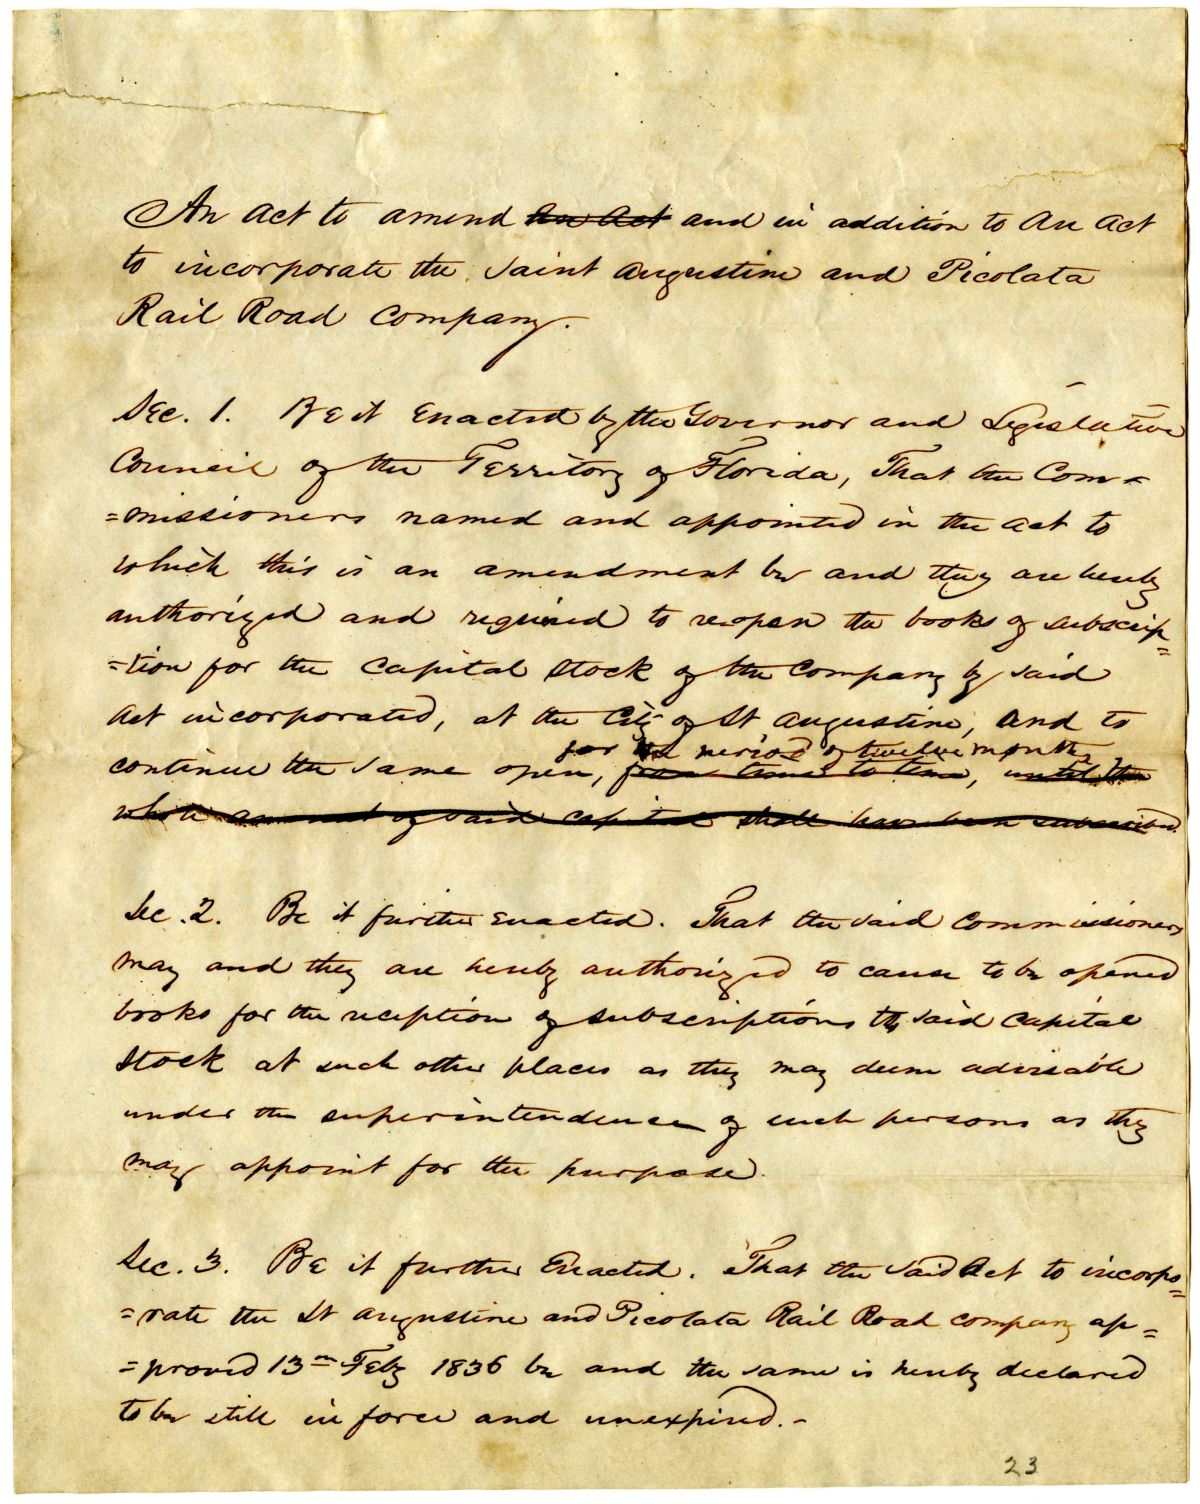 An Act to amend an Act and in addition to An Act
to incorporate the Saint Augustine and Picolata
Rail Road Company.
Sec. 1. Be it Enacted by the Governor and Legislative
Council of the Territory of Florida, That the Com=
=missioners named and appointed in the act to
which this is an amendment be and they are hereby
authorized and required to reopen the books of subscrip=
=tion for the Capital Stock of the Company by said
Act incorporated, at the City of St Augustine, and to
for the period of twelve months
continue the same open, from time to time, until the
whole amount of said capital shall have been subscribed.
Sec. 2. Be it further enacted. That the said Commissioners
may and they are hereby authorized to cause to be opened
books for the reception of subscriptions to said Capital
Stock at such other places as they may deem advisable
under the superintendence of such persons as they
may appoint for the purpose.
Sec. 3. Be it further Enacted. That the said Act to incorpo=
=rate the St Augustine and Picolata Rail Road company ap=
=proved 13th Feby 1836 be and the same is hereby declared
to be still in force and unexpired.-
23